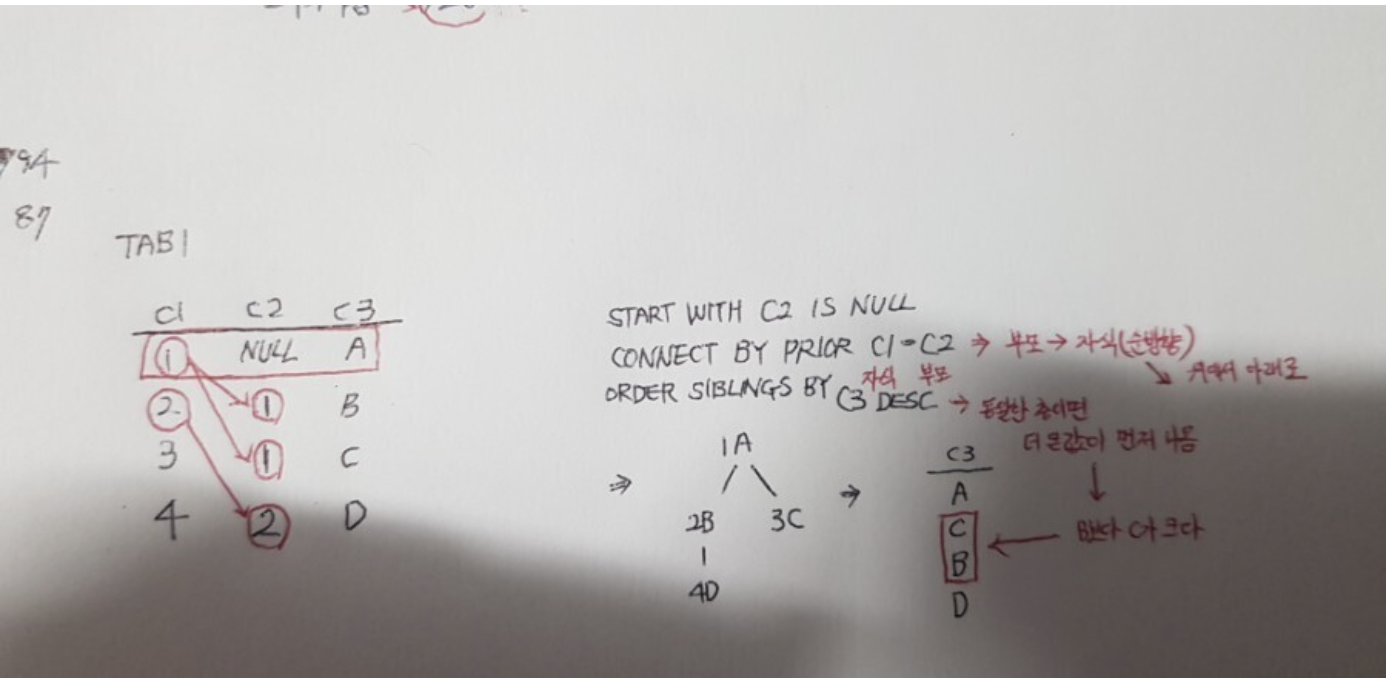 94
87
TAB1
C1 C2 C3
1 NULL A
2 1 B
3 1 C
4 2 D
START WITH C2 IS NULL
CONNECT BY PRIOR C1=C2 → 부모 → 자식(순방향)
자식 부모
위에서 아래로
ORDER SIBLINGS BY C3 DESC → 동일한 층이면
더 큰값이 먼저 나옴
1A
2B 3C
4D
C3
A
C
B
D
B보다 C가 크다